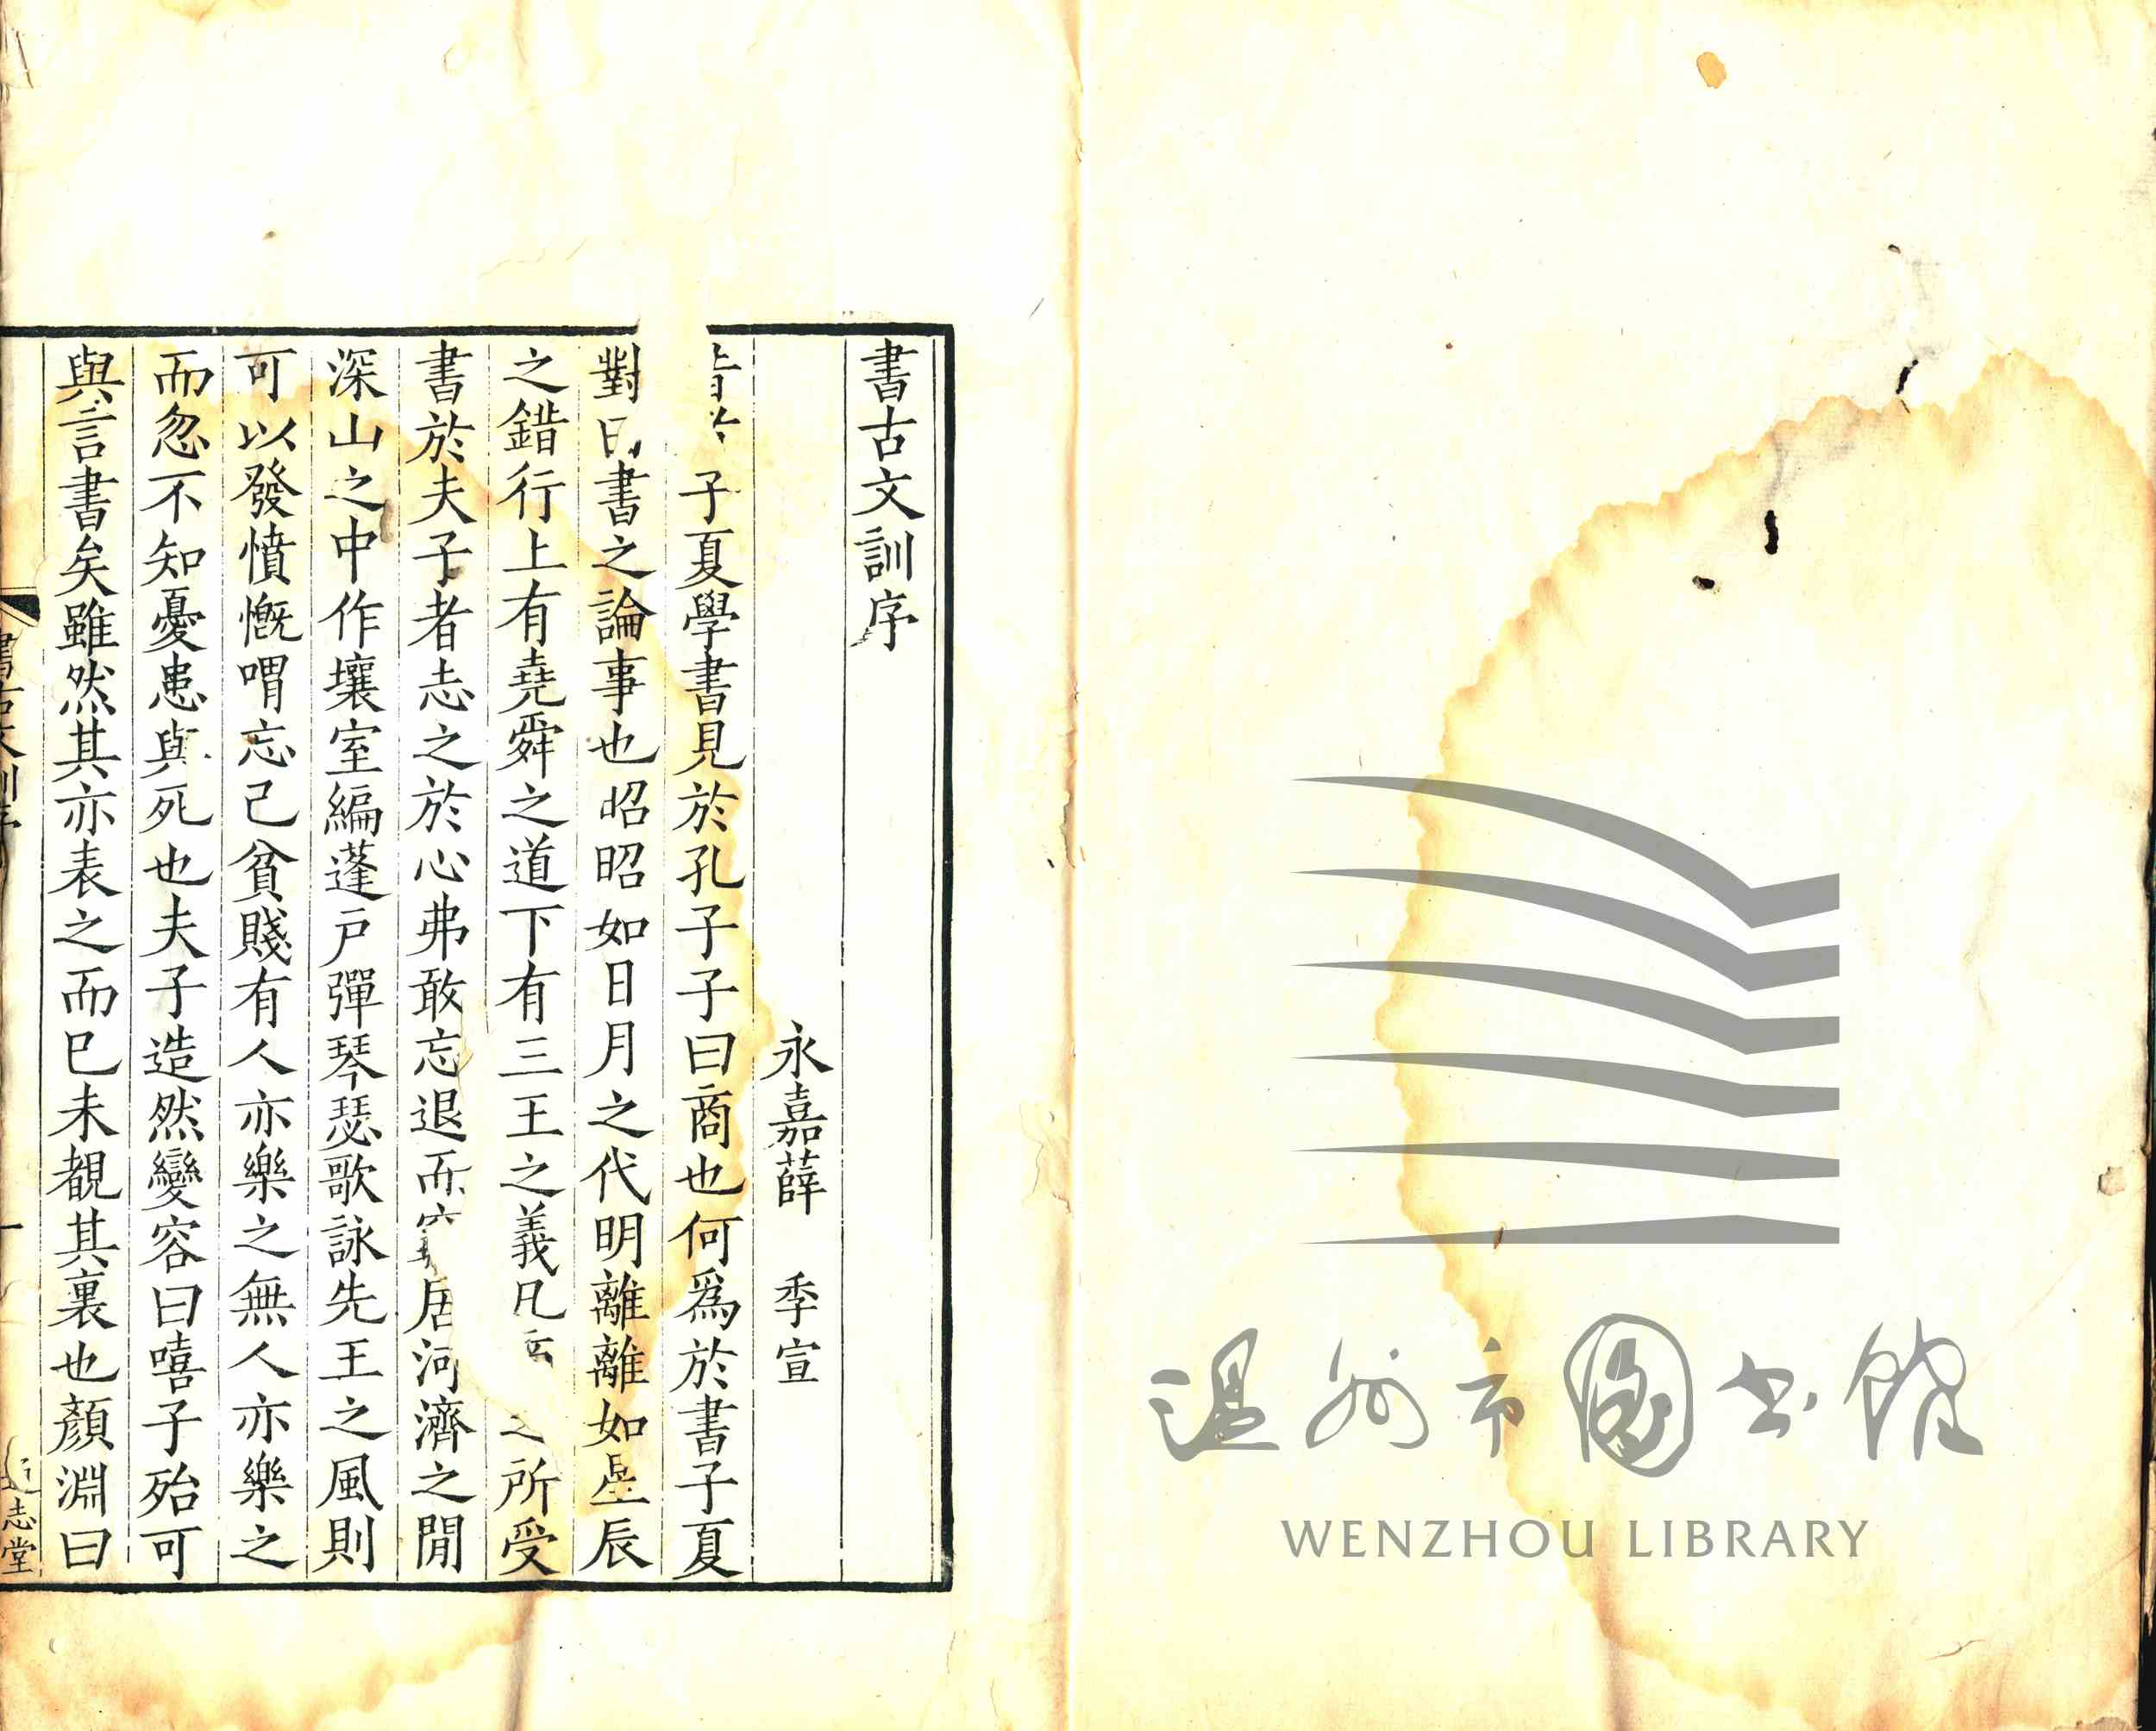 書古文訓序
永嘉薛 季宣
子夏學書見於孔子子曰商也何爲於書子夏
對曰書之論事也昭昭如日月之代明離離如星辰
之錯行上有堯舜之道下有三王之義凡之所受
書於夫子者志之於心弗敢忘退而居河濟之閒
深山之中作壤室編蓬戸彈琴瑟歌詠先王之風則
可以發憤慨喟忘己貧賤有人亦樂之無人亦樂之
而忽不知憂患與死也夫子造然變容曰嘻子殆可
與言書矣雖然其亦表之而巳未覩其裏也顏淵曰
書古文訓序
一
志堂
温州市图书馆
WENZHOU LIBRARY